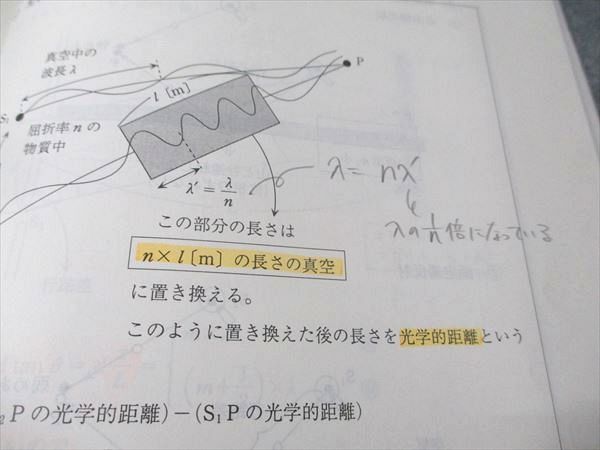 真空中の
波長λ
l〔m〕
P
S₁
屈折率 n の
物質中
λ′＝λ/n
λ = nλ′
λの1/n倍になっている
この部分の長さは
n×l〔m〕の長さの真空
に置き換える。
このように置き換えた後の長さを光学的距離という
₂Pの光学的距離)－(S₁Pの光学的距離)